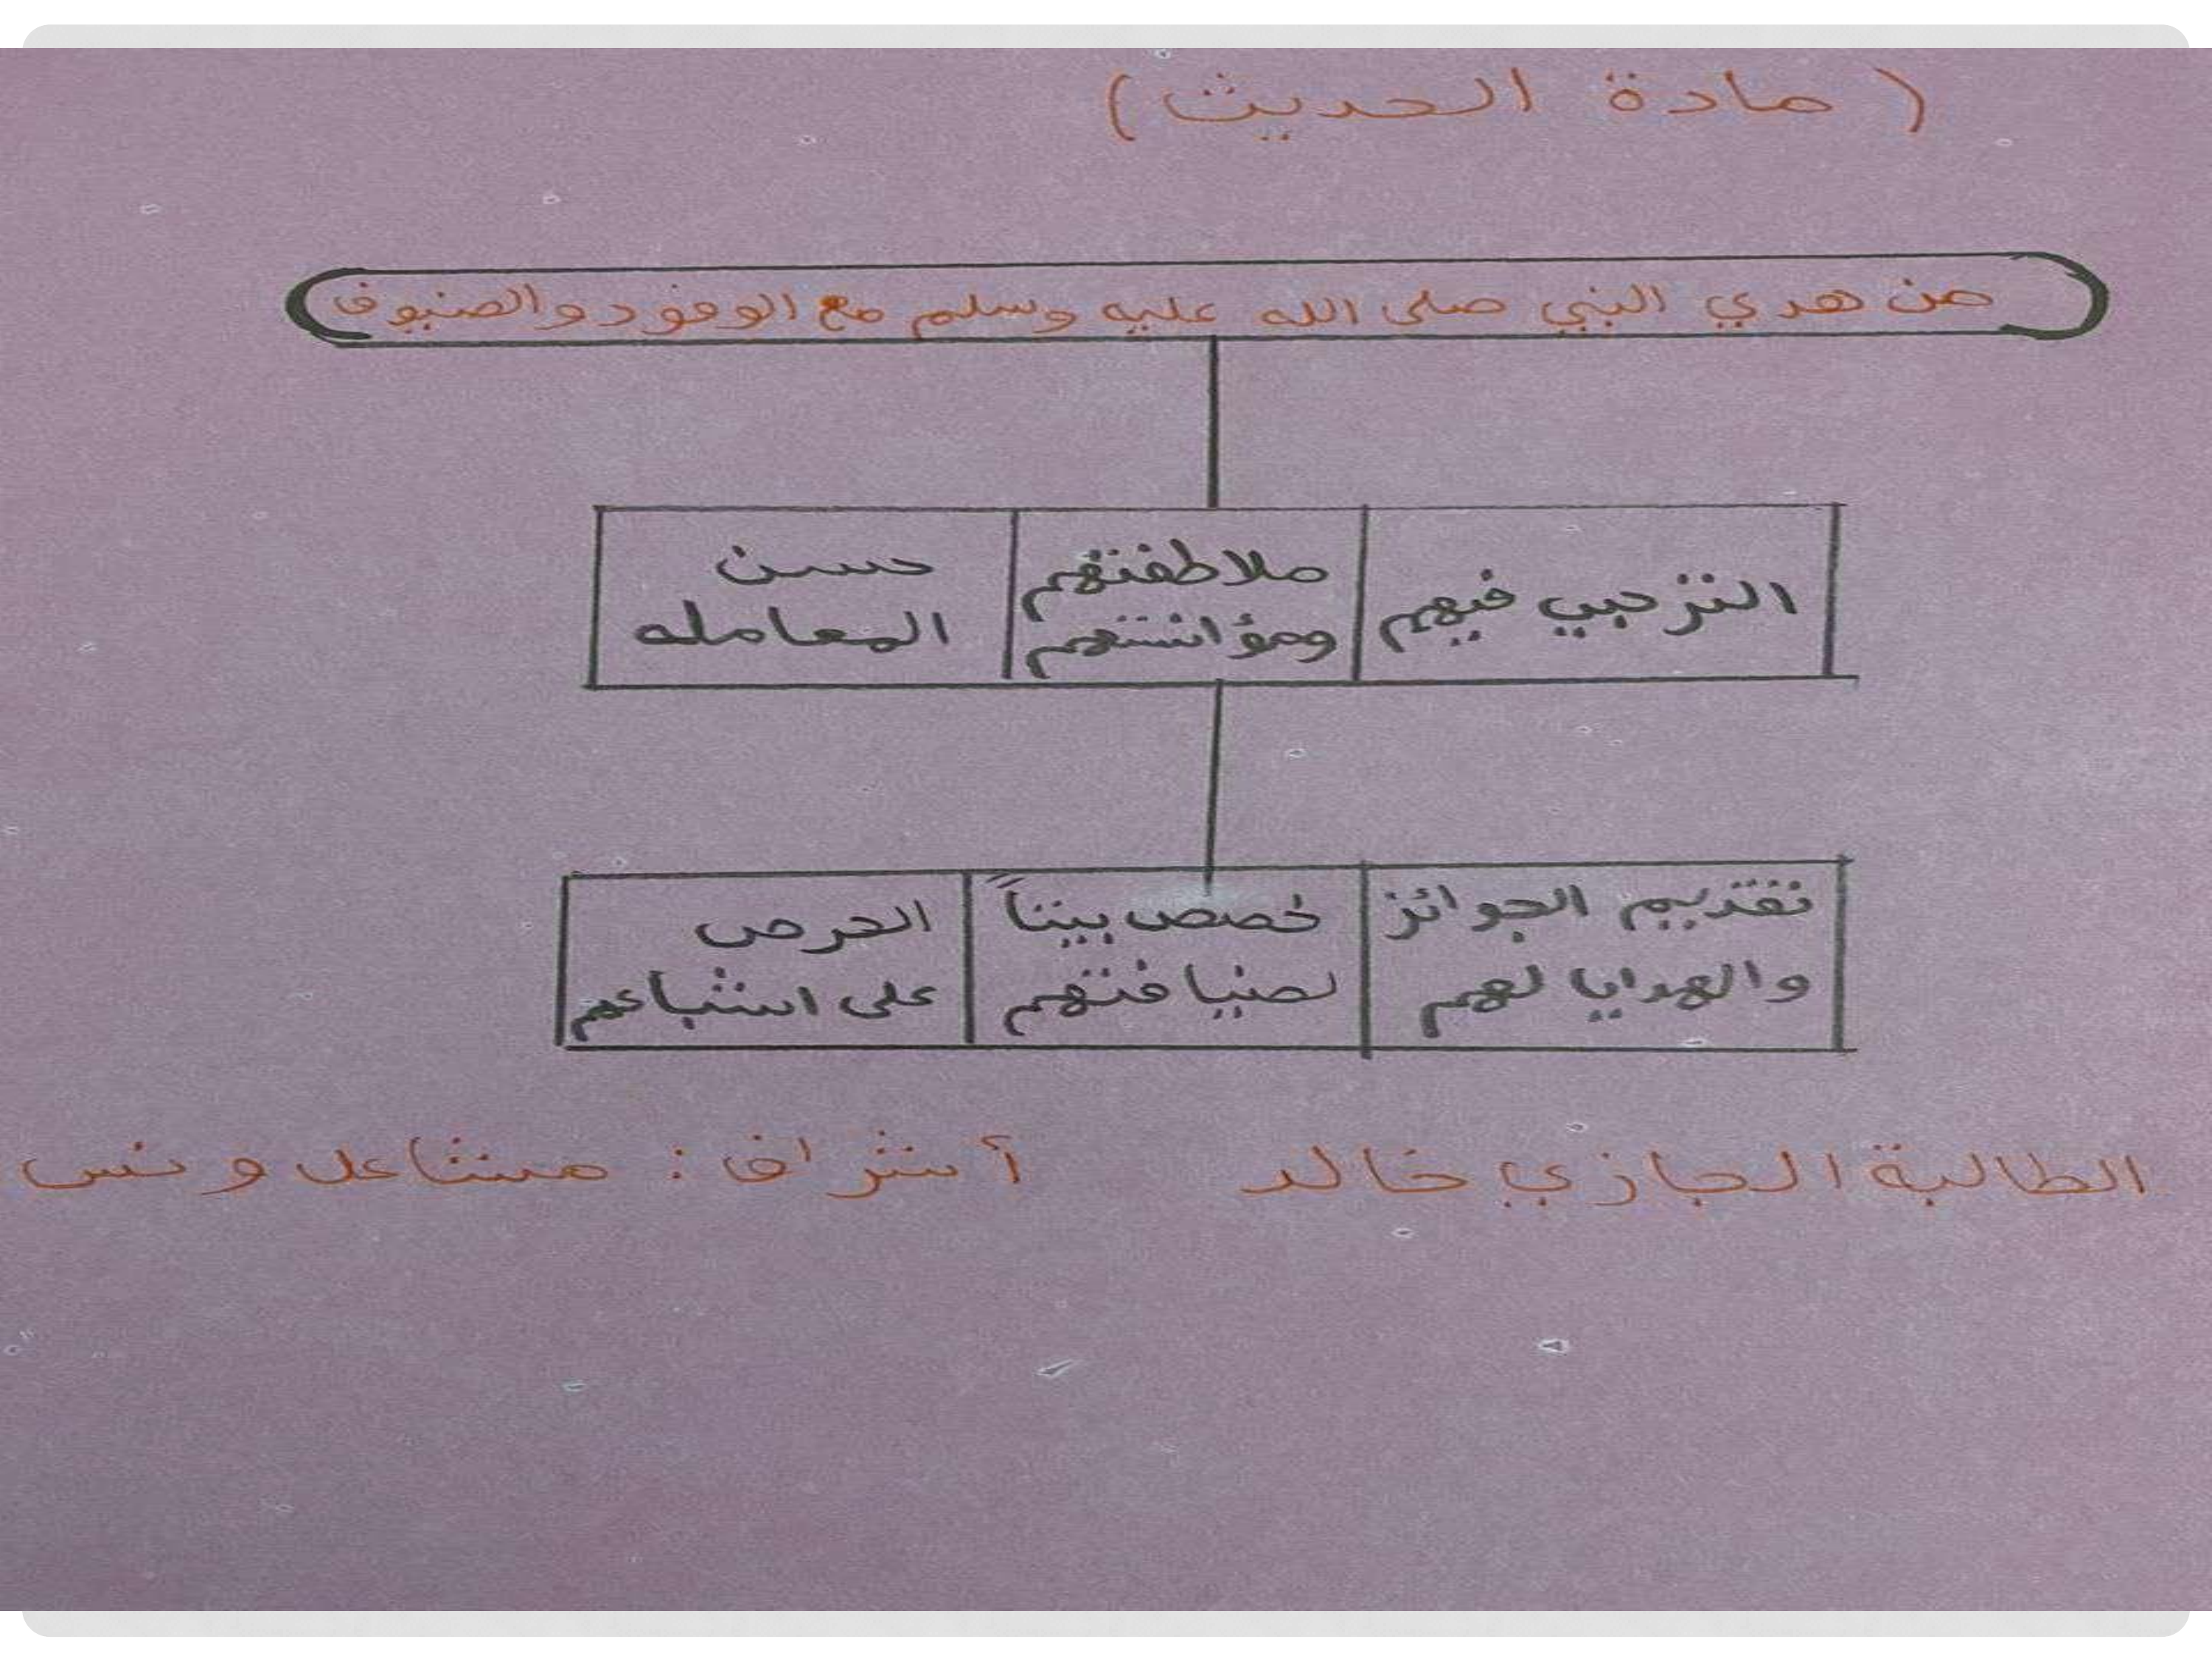 ( مادة الحديث )
من هدي النبي صلى الله عليه وسلم مع الوفود والضيوف
الترحيب فيهم
ملاطفتهم
ومؤانستهم
حسن
المعامله
تقديم الجوائز
والهدايا لهم
خصص بيتاً
لضيافتهم
الحرص
على اشباعهم
الطالبة الجازي خالد أشراف : مشاعل ونس